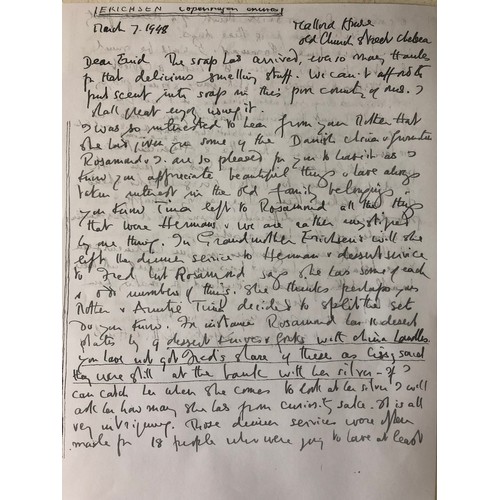 ERICHSEN Copenhagen China
March 7. 1948
Mallord House
Old Church Street Chelsea
Dear Enid The soap has arrived, ever so many thanks
for that delicious smelling stuff. We can't afford to
put scent into soaps in this poor country of ours. I
shall great enjoy using it.
I was so interested to hear from your Mother that
she has given you some of the Danish china & Grandma
Rosamund & I are so pleased for you to have it as I
know you appreciate beautiful things & have always
taken interest in the old family belongings.
you know Tina left to Rosamund all the things
that were Hermans & we are rather mystified
by one thing. In Grandmother Erichsen's will she
left the dinner service to Herman & dessert service
to Fred but Rosamund says she has some of each
& odd numbers of things. She thinks perhaps your
Mother & Auntie Tina decided to split the set
Do you know. For instance Rosamund has 11 dessert
plates & 9 dessert knives & forks with china handles.
you have not got Fred's share of these as Cissy said
they were still at the bank with her silver - If I
can catch her when she comes to look at her silver I will
ask her how many she has from curiosity sake. It is all
very intriguing. Those dinner services were often
made for 18 people who were going to have at least